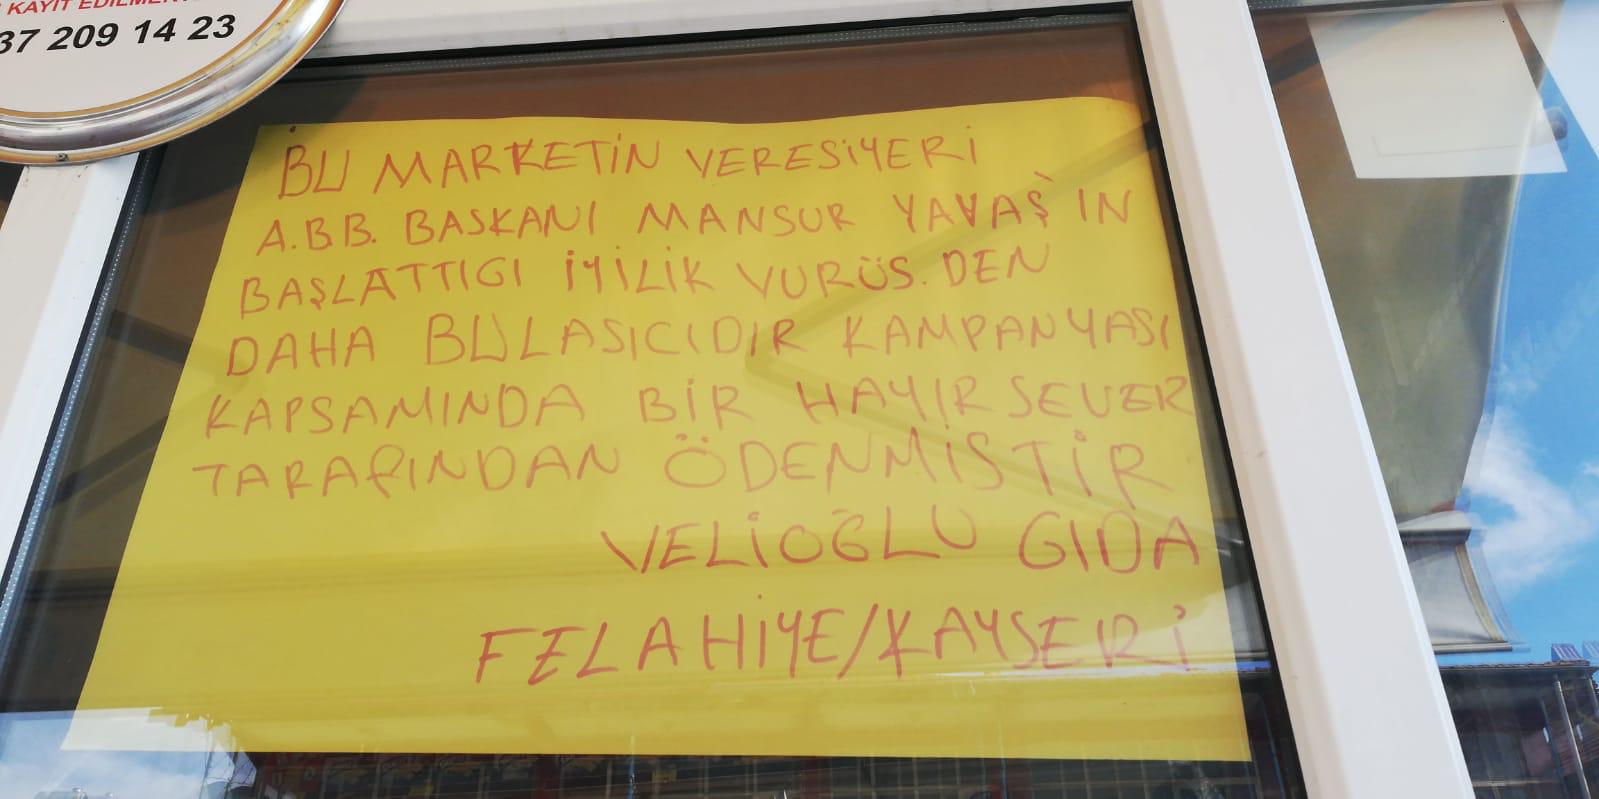 KAYIT EDİLMEK
37 209 14 23
BU MARKETİN VERESİYERİ
A.B.B. BASKANI MANSUR YAVAŞ'IN
BAŞLATTIGI İYİLİK VURÜS.DEN
DAHA BULASICIDIR KAMPANYASI
KAPSAMINDA BİR HAYIR SEVER
TARAfINDAN ÖDENMİSTİR
VELİOĞLU GIDA
FELAHİYE/KAYSERİ